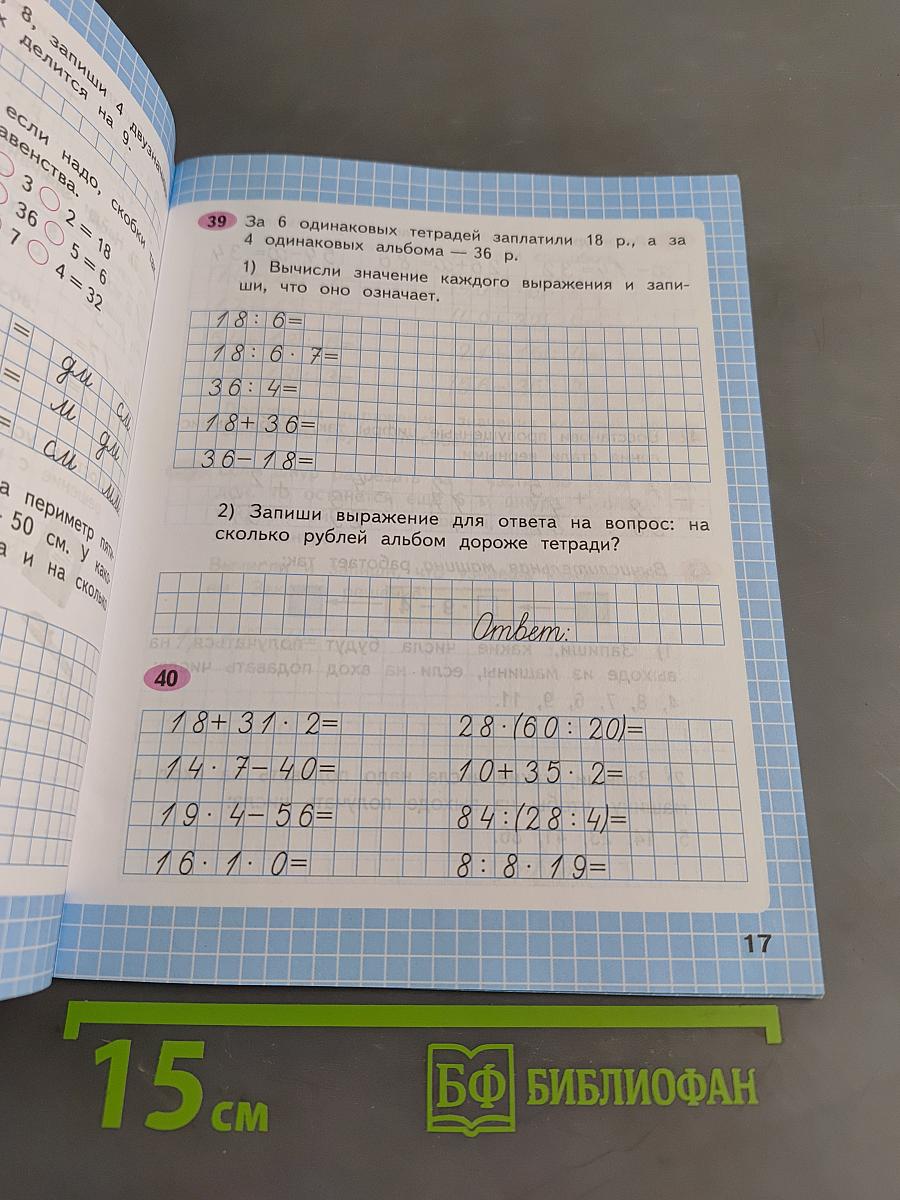 8, запиши 4
делится на 9.
если надо, скобки
3 2 = 18
36 5 = 6
7 4 = 32
= дм см
= м дм
= см мм
а периметр
50 см. У
а и на сколько
39 За 6 одинаковых тетрадей заплатили 18 р., а за
4 одинаковых альбома — 36 р.
1) Вычисли значение каждого выражения и запи-
ши, что оно означает.
18 : 6=
18 : 6 · 7=
36 : 4=
18+36=
36−18=
2) Запиши выражение для ответа на вопрос: на
сколько рублей альбом дороже тетради?
Ответ:
40
18+31 · 2= 28·(60 : 20)=
14 · 7−40= 10+35 · 2=
19 · 4−56= 84:(28 : 4)=
16 · 1 · 0= 8 : 8 · 19=
17
15 см
БФ БИБЛИОФАН